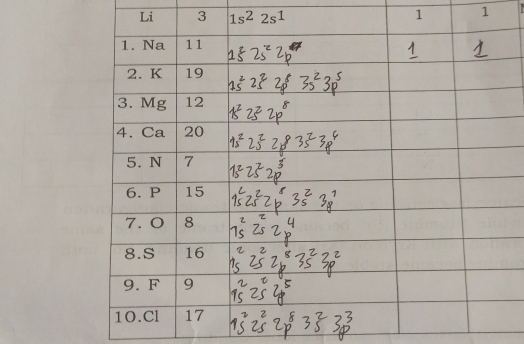 Li 3 1s² 2s¹ 1 1
1. Na 11 1s² 2s² 2p 1 1
2. K 19 1s² 2s² 2p⁸ 3s² 3p⁵
3. Mg 12 1s² 2s² 2p⁸
4. Ca 20 1s² 2s² 2p⁸ 3s² 3p⁶
5. N 7 1s² 2s² 2p³
6. P 15 1s² 2s² 2p⁸ 3s² 3p¹
7. O 8 1s² 2s² 2p⁴
8.S 16 1s² 2s² 2p⁸ 3s² 3p²
9. F 9 1s² 2s² 2p⁵
10.Cl 17 1s² 2s² 2p⁸ 3s² 3p³